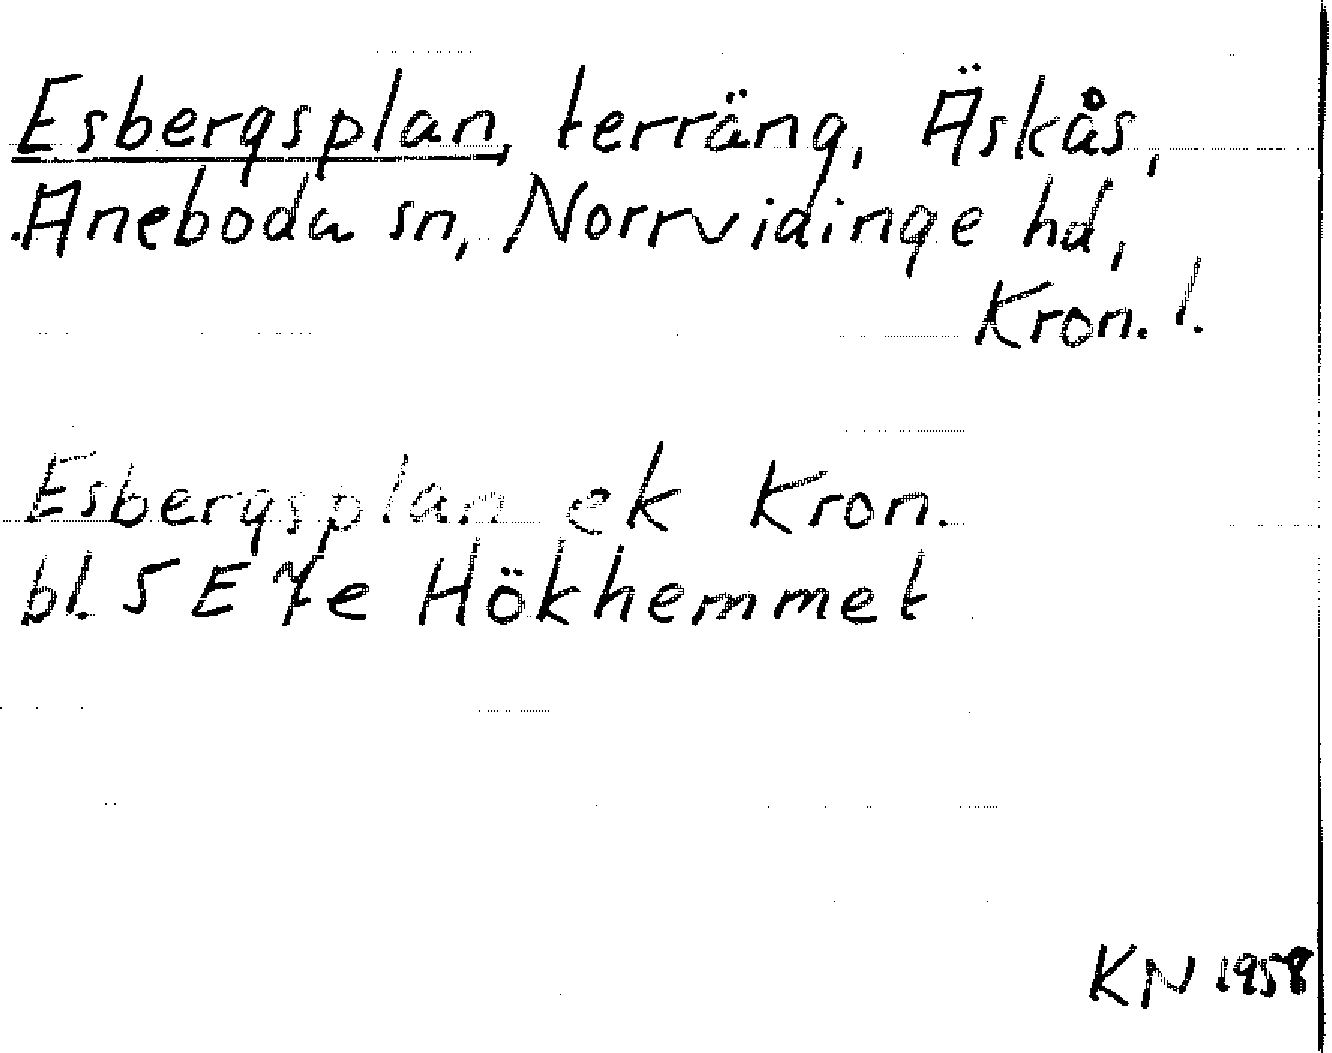 Esbergsplan, terräng, Äskås,
Aneboda sn, Norrvidinge hd,
Kron. !.
Esbergsplan ek Kron.
bl. 5 E 7e Hökhemmet
KN 1958